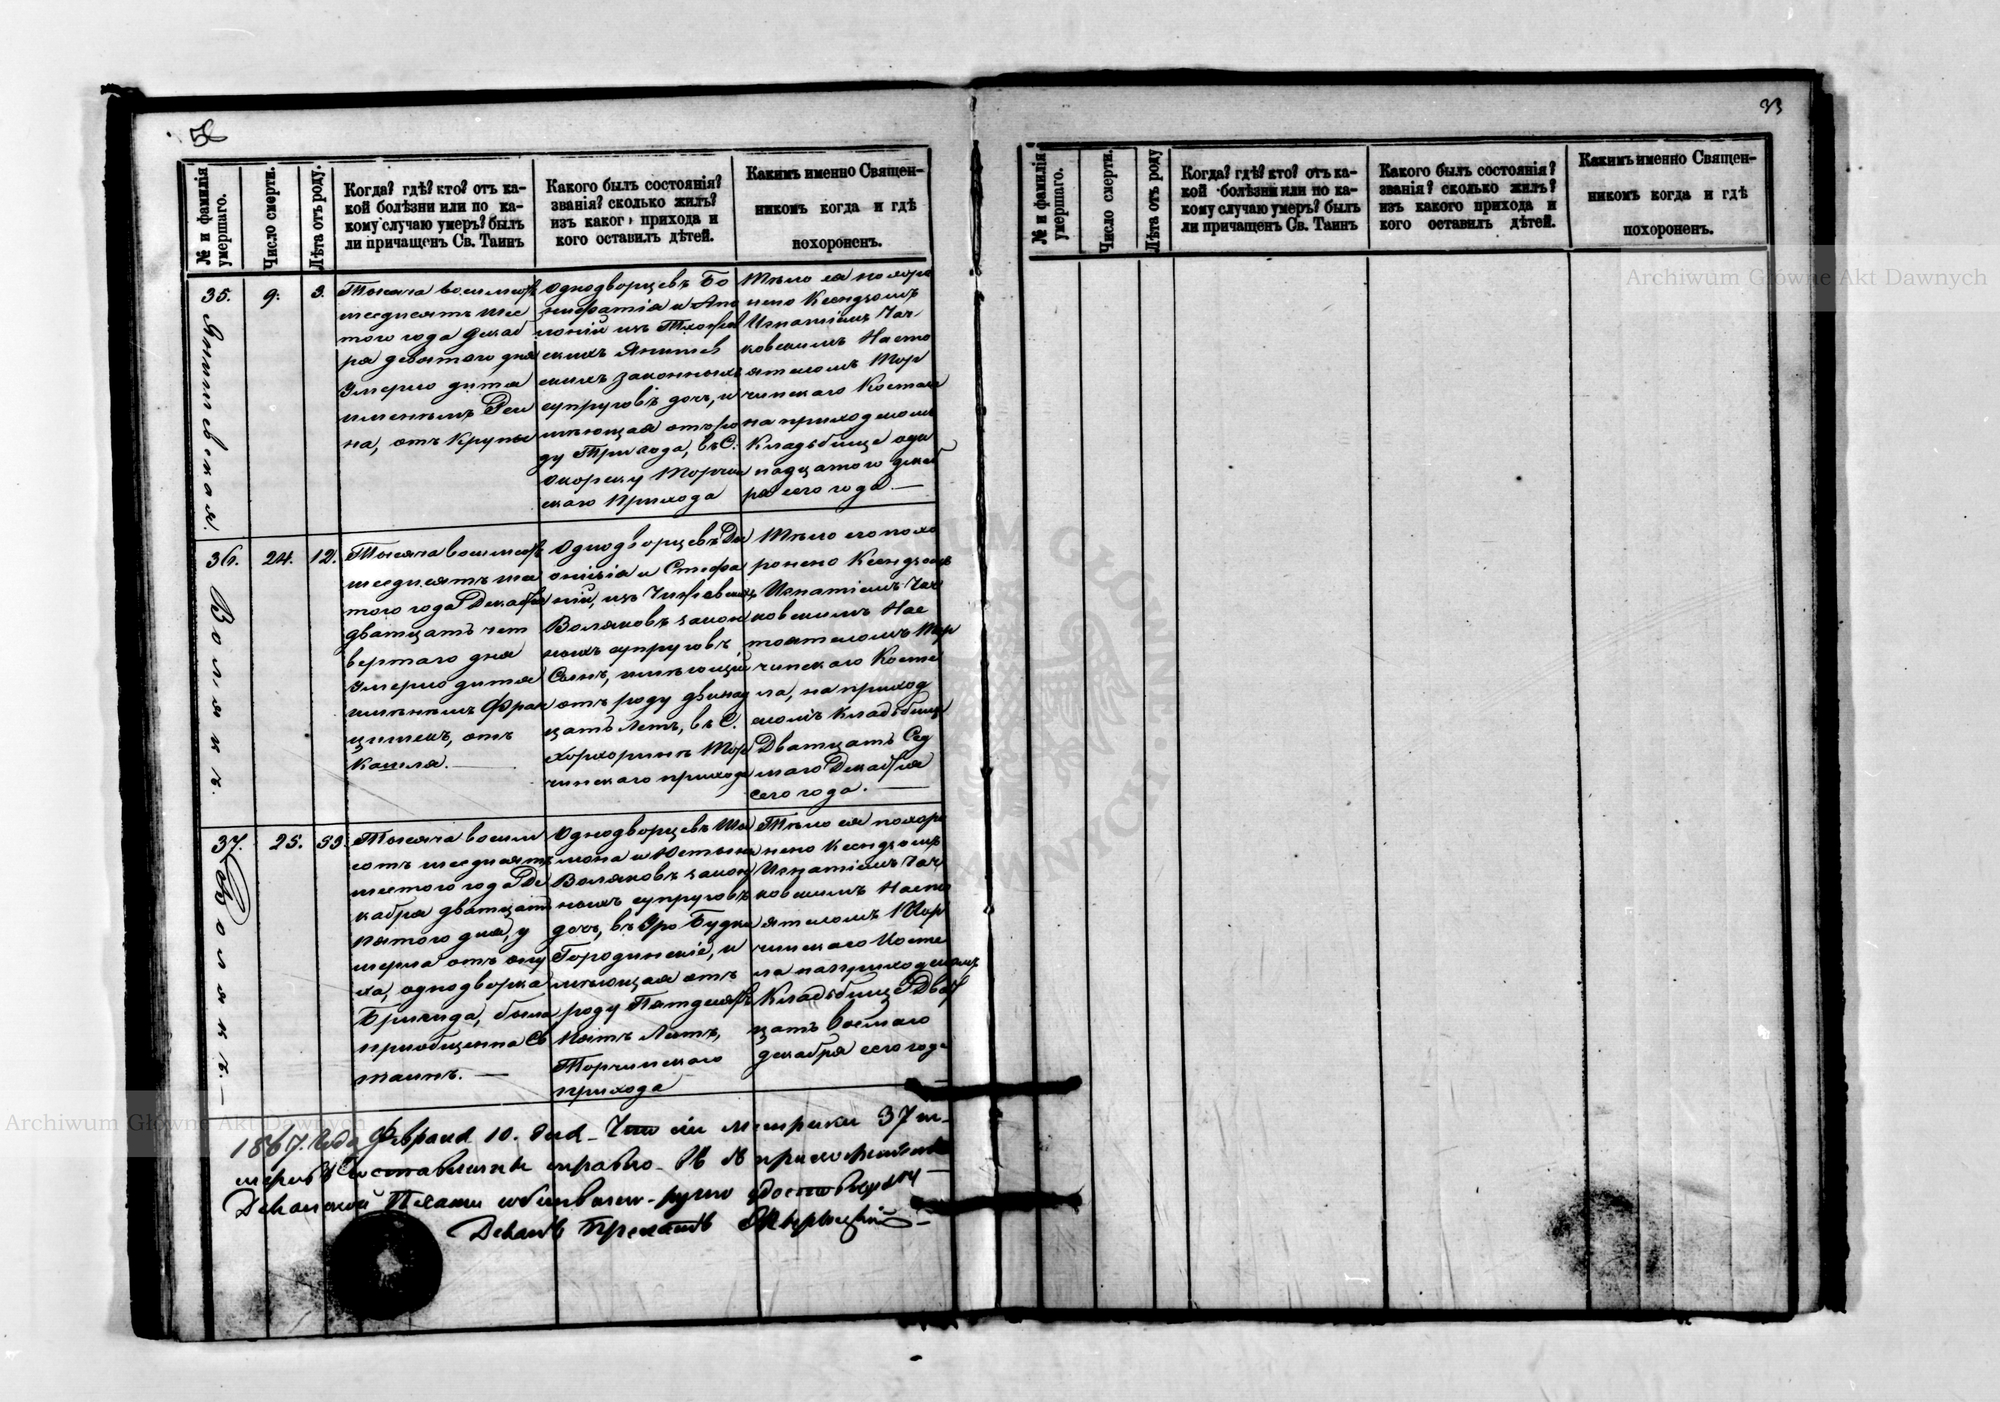 33
№ и фамилія умершаго.
Число смерти.
Лѣта отъ роду.
Когда? гдѣ? кто? отъ ка-
кой болѣзни или по ка-
кому случаю умеръ? былъ
ли причащенъ Св. Таинъ
Какого былъ состоянія?
званія? сколько жилъ?
изъ каког прихода и
кого оставилъ дѣтей.
Какимъ именно Священ-
никомъ когда и гдѣ
похороненъ.
35.
Янишевская
9.
3.
Тысяча восемсотъ
шесдисятъ шес
того года Декаб
ря девятого дня
Умерло дитя
именемъ Реги
на, отъ Крупы
Однодворцевъ Бо
нифатія и Апо
лоніи изъ
скихъ Янишев
скихъ законныхъ
супруговъ дочь, и
мѣющая отъ ро
ду Три года, въ С.
прихода
Тѣло ея похоро
нено Ксендзомъ
Игнатіемъ Чай
ковскимъ Насто
ятелемъ Тор
чинскаго Костела
на приходскомъ
Кладбище оди
надцатого декаб
ря сего года.—
36.
Волякъ.
24.
12.
Тысяча восемсотъ
шесдисятъ шес
того года Декабря
дватцать чет
вертаго дня
Умерло дитя
имѣнемъ Фран
цишекъ, отъ
Кашля.—
Однодворцевъ Ди
онизія и Стефа
ніи, изъ
Воляковъ закон
ныхъ супруговъ
Сынъ, имѣющій
отъ роду двѣнад
цать Летъ, въ С.
Хорхоринѣ Тор
чинскаго прихода
Тѣло его похо
ронено Ксендзомъ
Игнатіемъ Чай
ковскимъ Нас
тоятелемъ Тор
чинскаго Косте
ла, на приход
скомъ Кладбище
Дватцать Сед
маго Декабря
Сего года.—
37.
Волякъ.—
25.
55.
Тысяча восем
сотъ шесдисятъ
шестого года Де
кабря дватцать
пятого дня, у
мерла отъ опу
ха, однодворка
Бригида, была
приобщенна Св
таинъ.—
Однодворцевъ Ши
мона и Юстыны
Воляковъ закон
ныхъ супруговъ
дочь, въ Уро Будки
Городинскіе, и
мѣющая отъ
роду Пятдисятъ
пять Лѣтъ,
Торчинскаго
прихода
Тѣло ея похоро
нено Ксендзомъ
Игнатіемъ Чай
ковскимъ Насто
ятелемъ Тор
чинскаго Косте
ла на приходскомъ
Кладбищѣ Двад
цать восмаго
декабря сего года
1867. Года Февраля 10. дня — Что сіи метрики 37 ти
въ томъ съ приложеніемъ
Деканской Печати
Деканъ Прелатъ
№ и фамилія умершаго.
Число смерти.
Лѣта отъ роду
Когда? гдѣ? кто? отъ ка-
кой болѣзни или по ка-
кому случаю умеръ? былъ
ли причащенъ Св. Таинъ
Какого былъ состоянія?
званія? сколько жилъ?
изъ какого прихода и
кого оставилъ дѣтей.
Какимъ именно Священ-
никомъ когда и гдѣ
похороненъ.
Archiwum Główne Akt Dawnych
Archiwum Główne Akt Dawnych